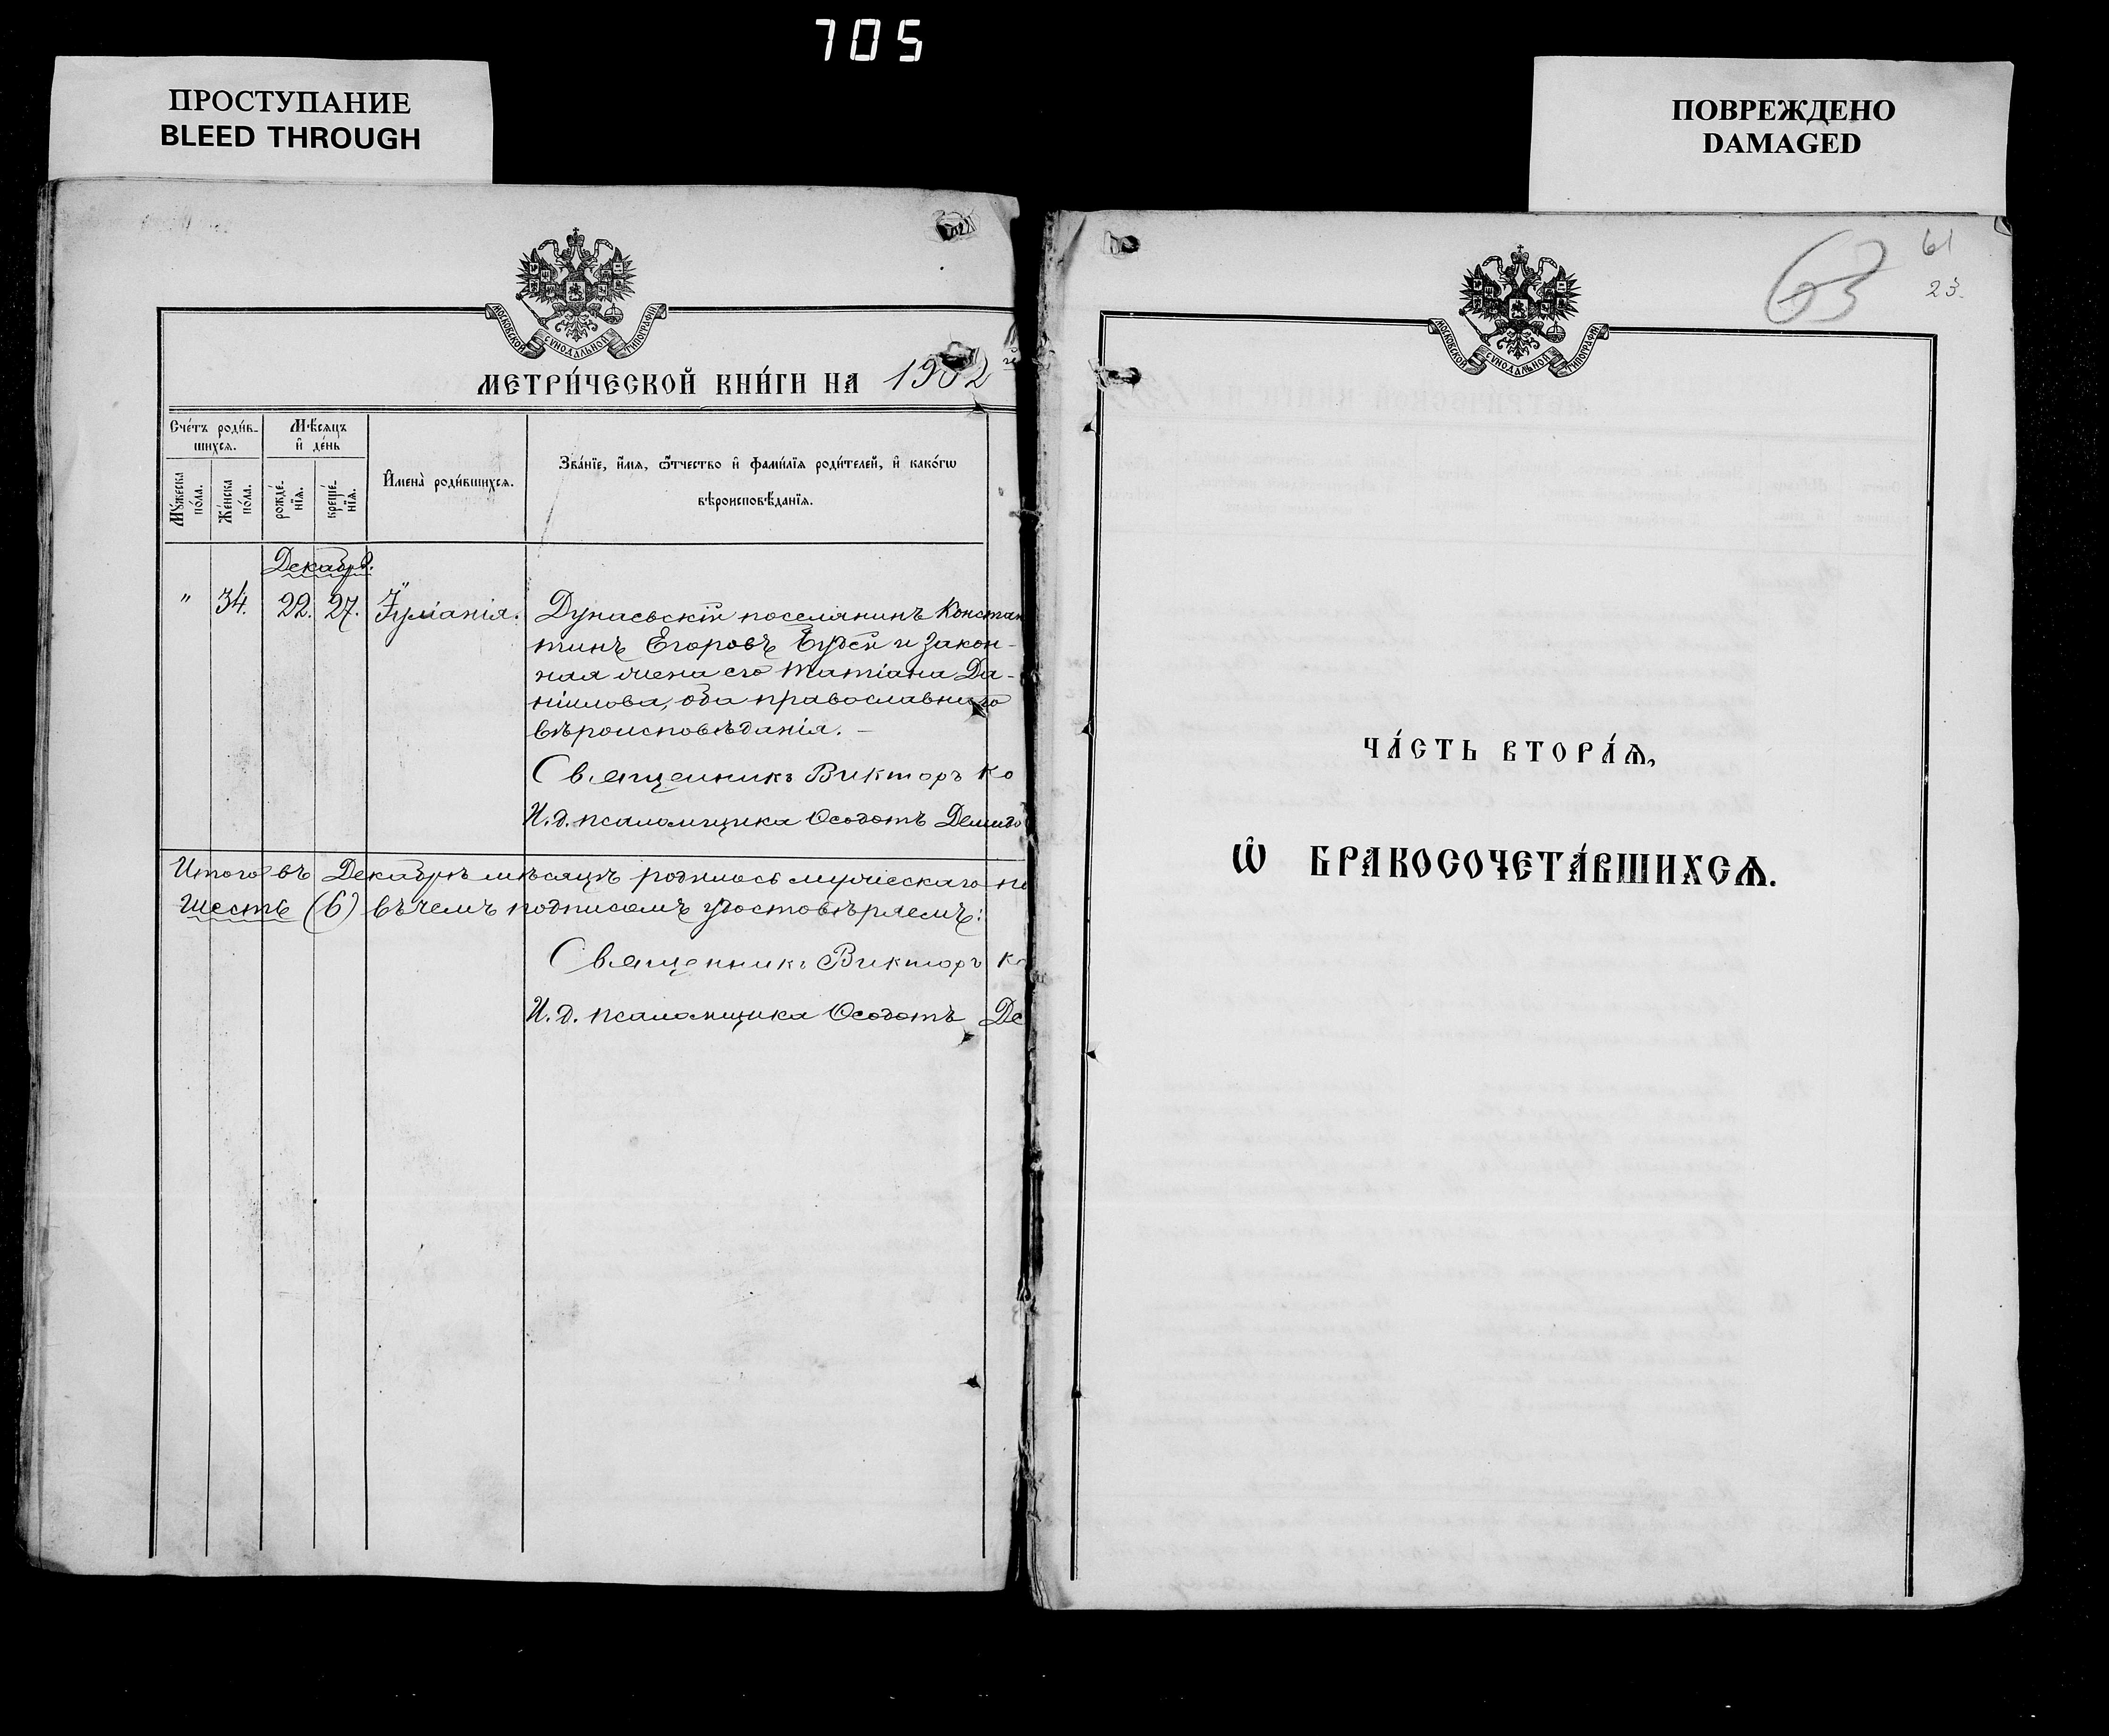 705
ПРОСТУПАНИЕ
BLEED THROUGH
ПОВРЕЖДЕНО
DAMAGED
МОСКОВСКОЙ СУНОДАЛЬНОЙ ТИПОГРАФІИ
МЕТРИ́ЧЕСКОЙ КНИ́ГИ НА 1902
Сче́тъ роди́в-
шихсѧ.
Мѣ́сѧцъ
и҆ де́нь
Мꙋ́жеска
по́ла.
Же́нска
по́ла.
рожде́-
нїѧ.
креще́-
нїѧ.
И҆мена̀ роди́вшихсѧ.
Зва́нїе, и҆́мѧ, ѻ҆́тчество и҆ фами́лїѧ роди́телей, и҆ како́гѡ
вѣроисповѣ́данїѧ.
Декабрь.
" 34. 22. 27. Іуліанія. Дунаевскій поселянинъ Констан
тинъ Егоровъ и закон-
ная жена его Татіана Да-
ніилова, оба православнаго
вѣроисповѣданія. –
Священникъ Викторъ Ко
И. д. псаломщика Ѳеодотъ Демидо
Итого въ Декабрѣ мѣсяцѣ родилось мужескаго по
шесть (6) въ чемъ подписомъ удостовѣряемъ:
Священникъ Викторъ Ко
И. д. псаломщика Ѳеодотъ Де
63
61
23.
МОСКОВСКОЙ СУНОДАЛЬНОЙ ТИПОГРАФІИ
ЧА́СТЬ ВТОРА́Ѧ,
Ѽ БРАКОСОЧЕТА́ВШИХСѦ.